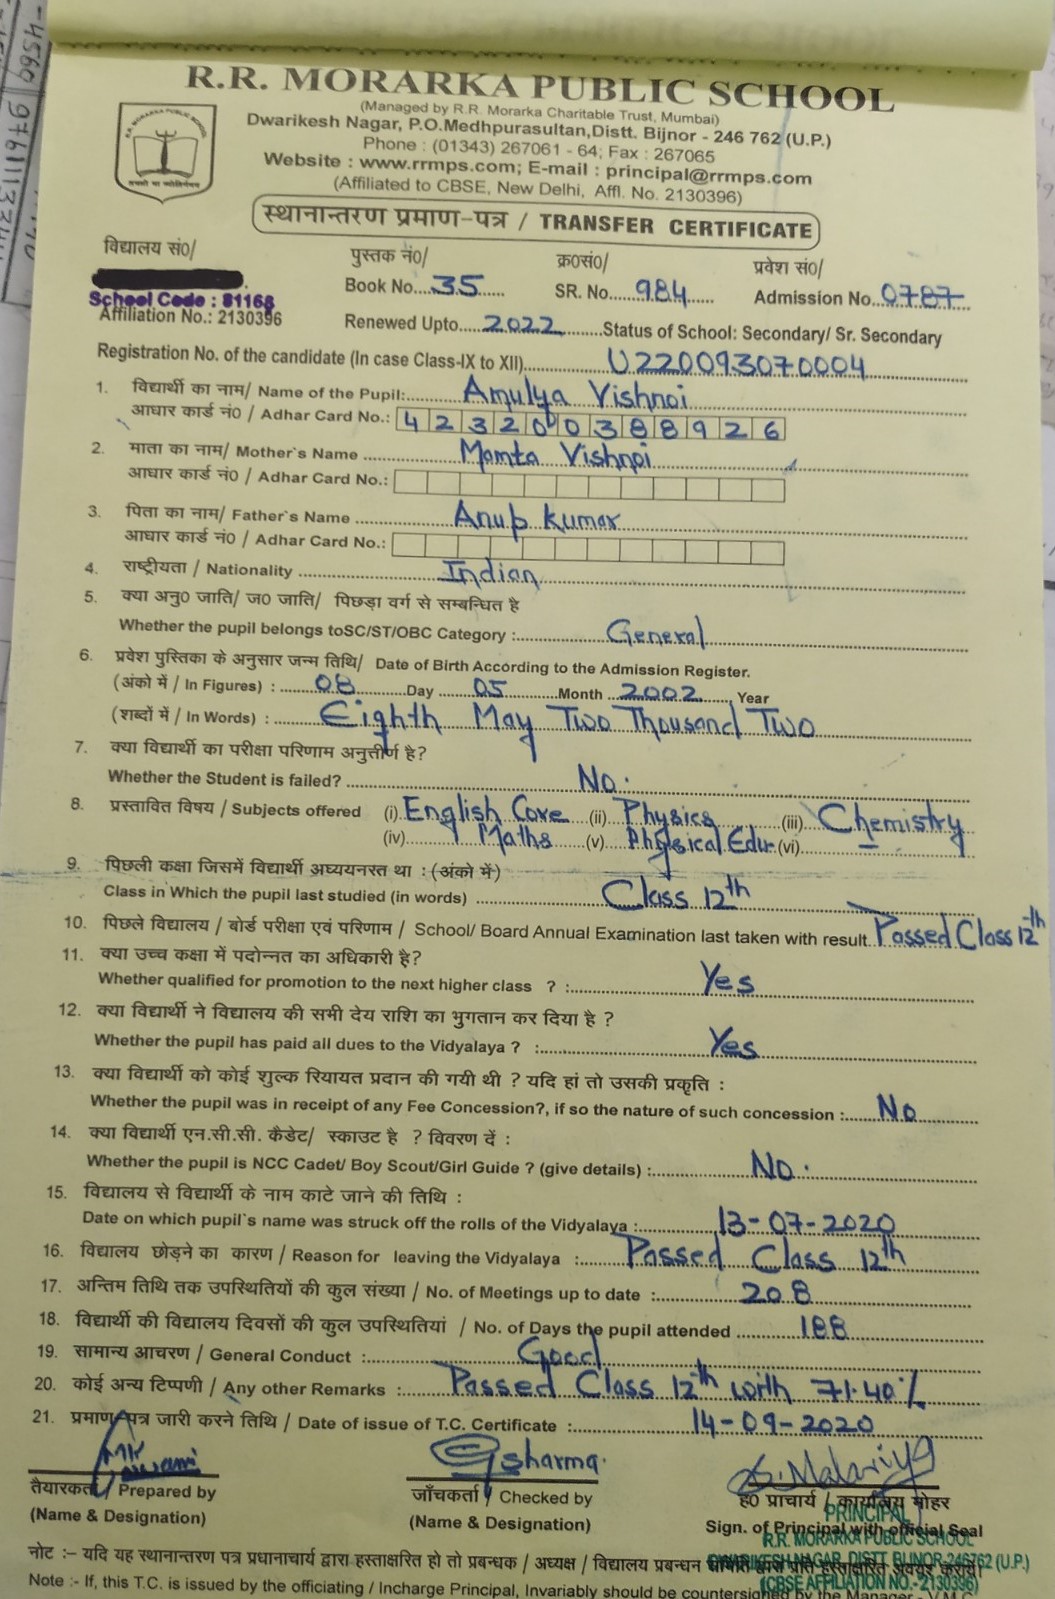 R.R. MORARKA PUBLIC SCHOOL
(Managed by R.R. Morarka Charitable Trust, Mumbai)
Dwarikesh Nagar, P.O.Medhpurasultan,Distt. Bijnor - 246 762 (U.P.)
Phone : (01343) 267061 - 64; Fax : 267065
Website : www.rrmps.com; E-mail : principal@rrmps.com
(Affiliated to CBSE, New Delhi, Affl. No. 2130396)
स्थानान्तरण प्रमाण-पत्र / TRANSFER CERTIFICATE
विद्यालय सं०/ पुस्तक नं०/ क्र०सं०/ प्रवेश सं०/
Book No....35...... SR. No.......984...... Admission No..0787
School Code : 81168
Affiliation No.: 2130396 Renewed Upto....2022........Status of School: Secondary/ Sr. Secondary
Registration No. of the candidate (In case Class-IX to XII)....................U220093070004
1. विद्यार्थी का नाम/ Name of the Pupil:............Amulya Vishnoi
आधार कार्ड नं० / Adhar Card No.: 423200388926
2. माता का नाम/ Mother's Name ....................Mamta Vishnoi
आधार कार्ड नं० / Adhar Card No.:
3. पिता का नाम/ Father's Name ....................Anup Kumar
आधार कार्ड नं० / Adhar Card No.:
4. राष्ट्रीयता / Nationality ............................Indian
5. क्या अनु० जाति/ ज० जाति/ पिछड़ा वर्ग से सम्बन्धित है
Whether the pupil belongs toSC/ST/OBC Category :..................General
6. प्रवेश पुस्तिका के अनुसार जन्म तिथि/ Date of Birth According to the Admission Register.
(अंको में / In Figures) : .......08.........Day ......05.........Month ..2002......, Year
(शब्दों में / In Words) : ........Eighth May Two Thousand Two
7. क्या विद्यार्थी का परीक्षा परिणाम अनुत्तीर्ण है?
Whether the Student is failed? ...............................................No.
8. प्रस्तावित विषय / Subjects offered (i) English Core (ii) Physics (iii) Chemistry
(iv) Maths (v) Physical Edu. (vi)
9. पिछली कक्षा जिसमें विद्यार्थी अघ्ययनरत था : (अंको में)
Class in Which the pupil last studied (in words) ........................Class 12th
10. पिछले विद्यालय / बोर्ड परीक्षा एवं परिणाम / School/ Board Annual Examination last taken with result. Passed Class 12th
11. क्या उच्च कक्षा में पदोन्नत का अधिकारी है?
Whether qualified for promotion to the next higher class ? :........................Yes
12. क्या विद्यार्थी ने विद्यालय की सभी देय राशि का भुगतान कर दिया है ?
Whether the pupil has paid all dues to the Vidyalaya ? :.............................Yes
13. क्या विद्यार्थी को कोई शुल्क रियायत प्रदान की गयी थी ? यदि हां तो उसकी प्रकृति :
Whether the pupil was in receipt of any Fee Concession?, if so the nature of such concession :......No
14. क्या विद्यार्थी एन.सी.सी. कैडेट/ स्काउट है ? विवरण दें :
Whether the pupil is NCC Cadet/ Boy Scout/Girl Guide ? (give details) :..................No.
15. विद्यालय से विद्यार्थी के नाम काटे जाने की तिथि :
Date on which pupil's name was struck off the rolls of the Vidyalaya :..............13-07-2020
16. विद्यालय छोड़ने का कारण / Reason for leaving the Vidyalaya :......Passed Class 12th
17. अन्तिम तिथि तक उपस्थितियों की कुल संख्या / No. of Meetings up to date :..............208
18. विद्यार्थी की विद्यालय दिवसों की कुल उपस्थितियां / No. of Days the pupil attended ..........188
19. सामान्य आचरण / General Conduct :........................Good
20. कोई अन्य टिप्पणी / Any other Remarks :........Passed Class 12th with 71.40%
21. प्रमाण-पत्र जारी करने तिथि / Date of issue of T.C. Certificate :....................14-09-2020
तैयारकर्ता / Prepared by जाँचकर्ता / Checked by ह० प्राचार्य / कार्यालय मोहर
(Name & Designation) (Name & Designation) Sign. of Principal with official Seal
PRINCIPAL
R.R. MORARKA PUBLIC SCHOOL
DWARIKESH NAGAR, DISTT. BIJNOR-246762 (U.P.)
(CBSE AFFILIATION NO.-2130396)
नोट :– यदि यह स्थानान्तरण पत्र प्रधानाचार्य द्वारा हस्ताक्षरित हो तो प्रबन्धक / अध्यक्ष / विद्यालय प्रबन्धन
Note :- If, this T.C. is issued by the officiating / Incharge Principal, Invariably should be countersigned by the Manager - V.M.C.